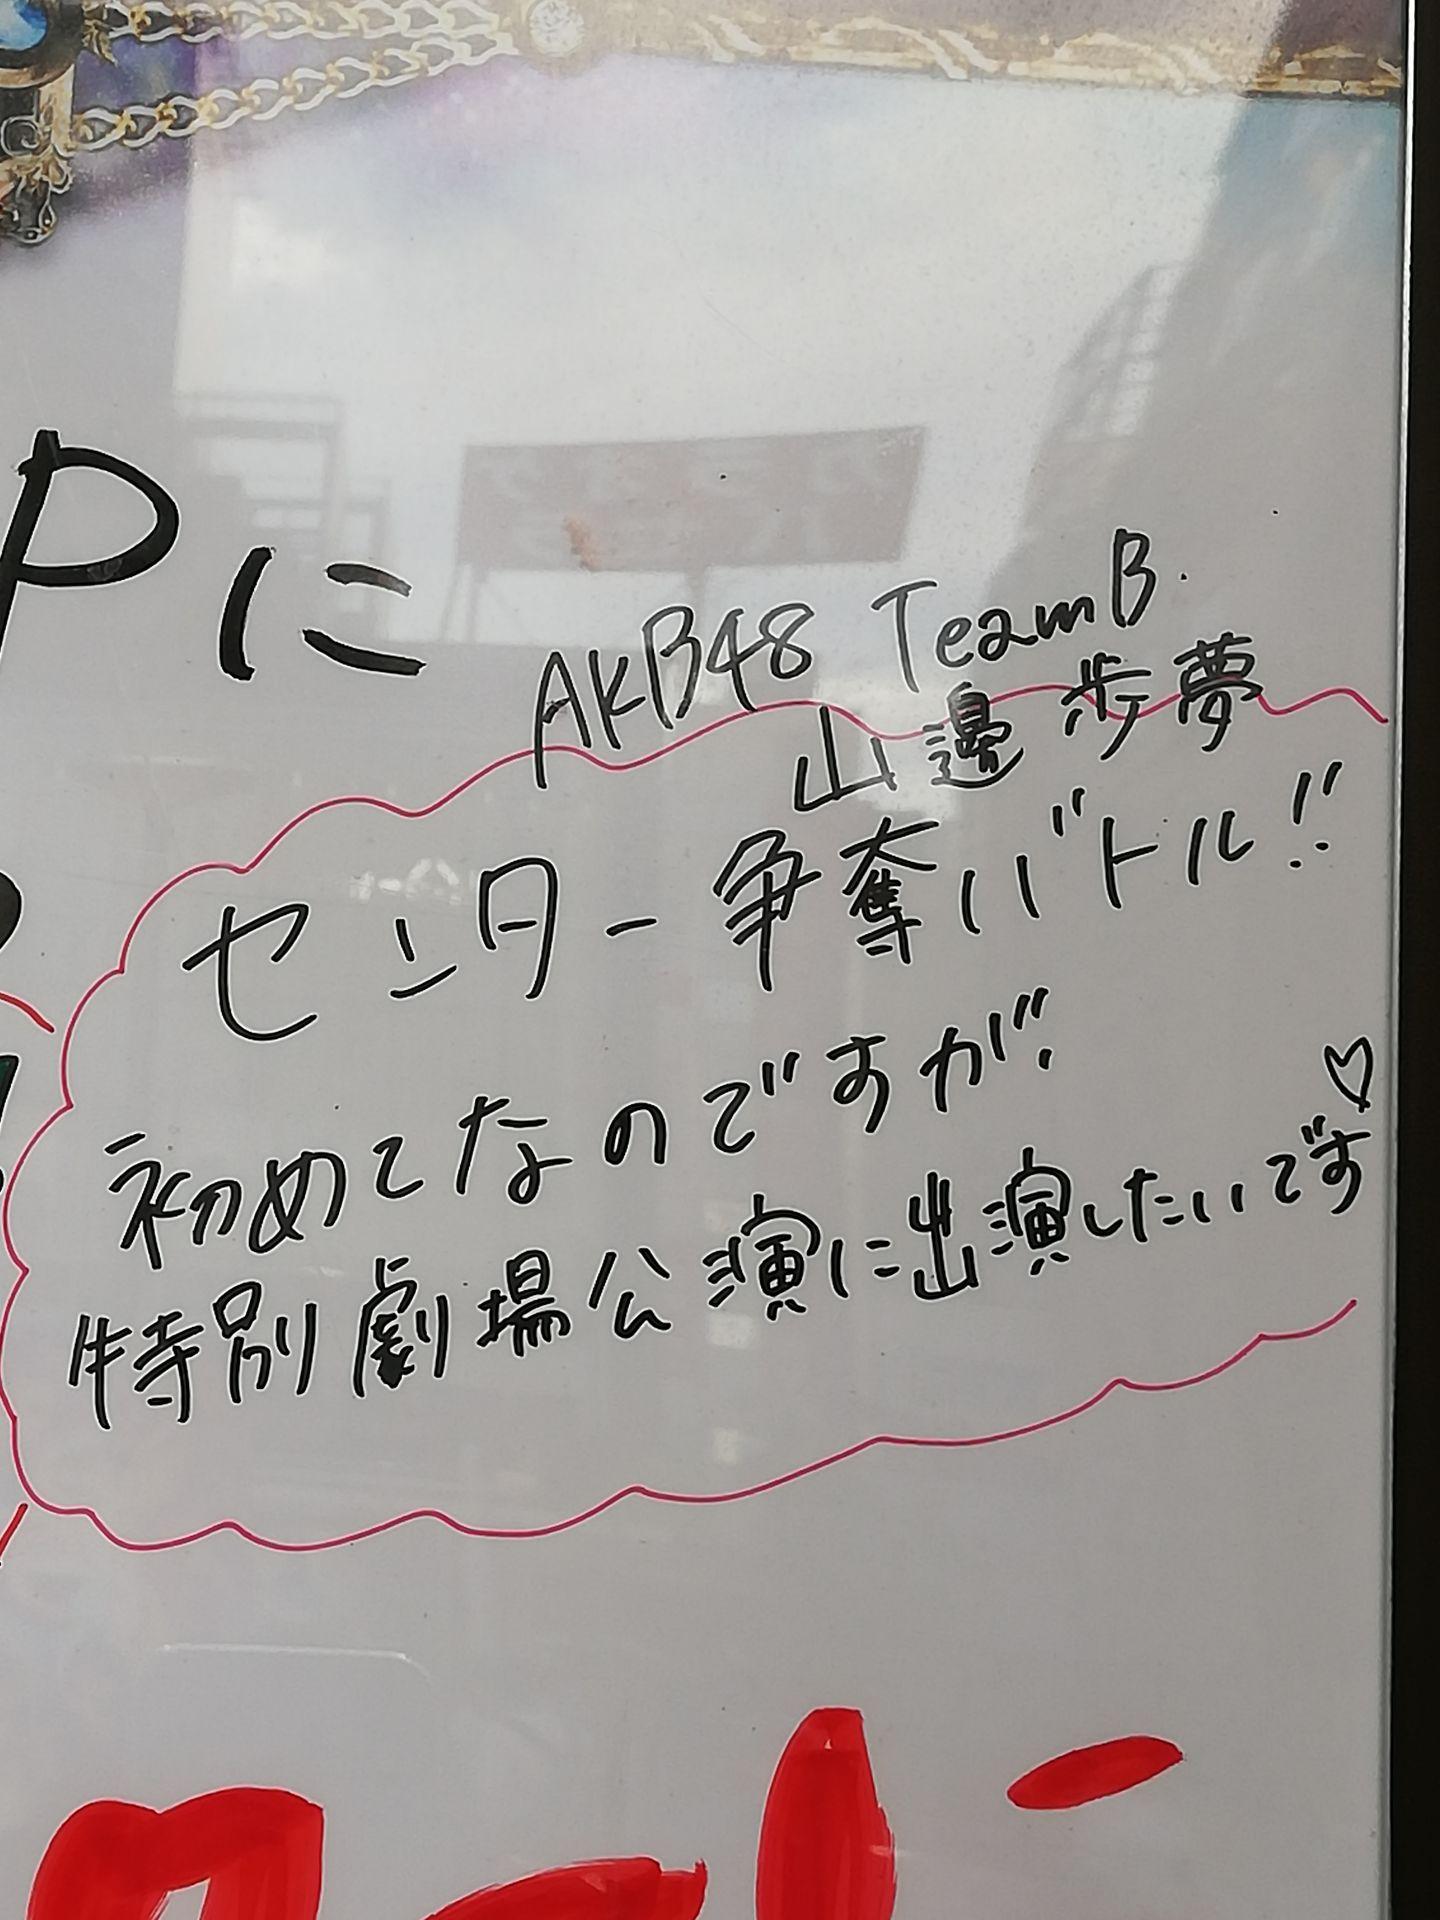 Pに
AKB48 TeamB
山邊 歩夢
センター争奪バトル!!
初めてなのですが
特別劇場公演に出演したいです♡